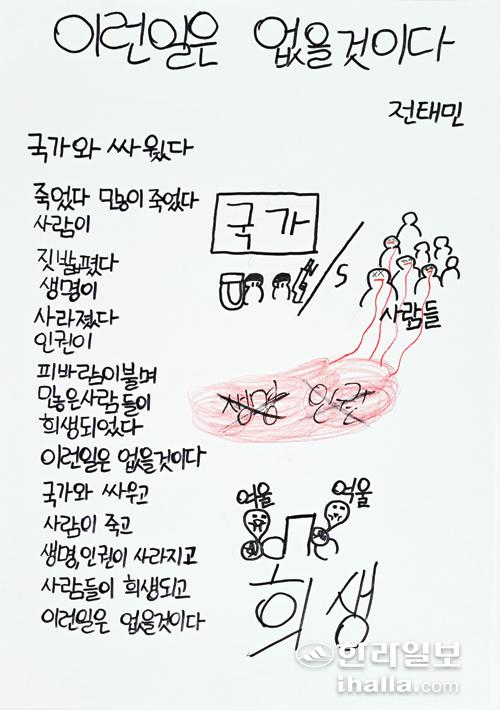 이런일은 없을것이다
전태민
국가와 싸웠다
죽었다 많이 죽었다
사람이
짓밟혔다
생명이
사라졌다
인권이
피바람이불며
많은사람들이
희생되었다
이런일은 없을것이다
국가와 싸우고
사람이 죽고
생명,인권이 사라지고
사람들이 희생되고
이런일은 없을것이다
국가
/S
사람들
생명 인권
억울 억울
희생
한라일보
ihalla.com